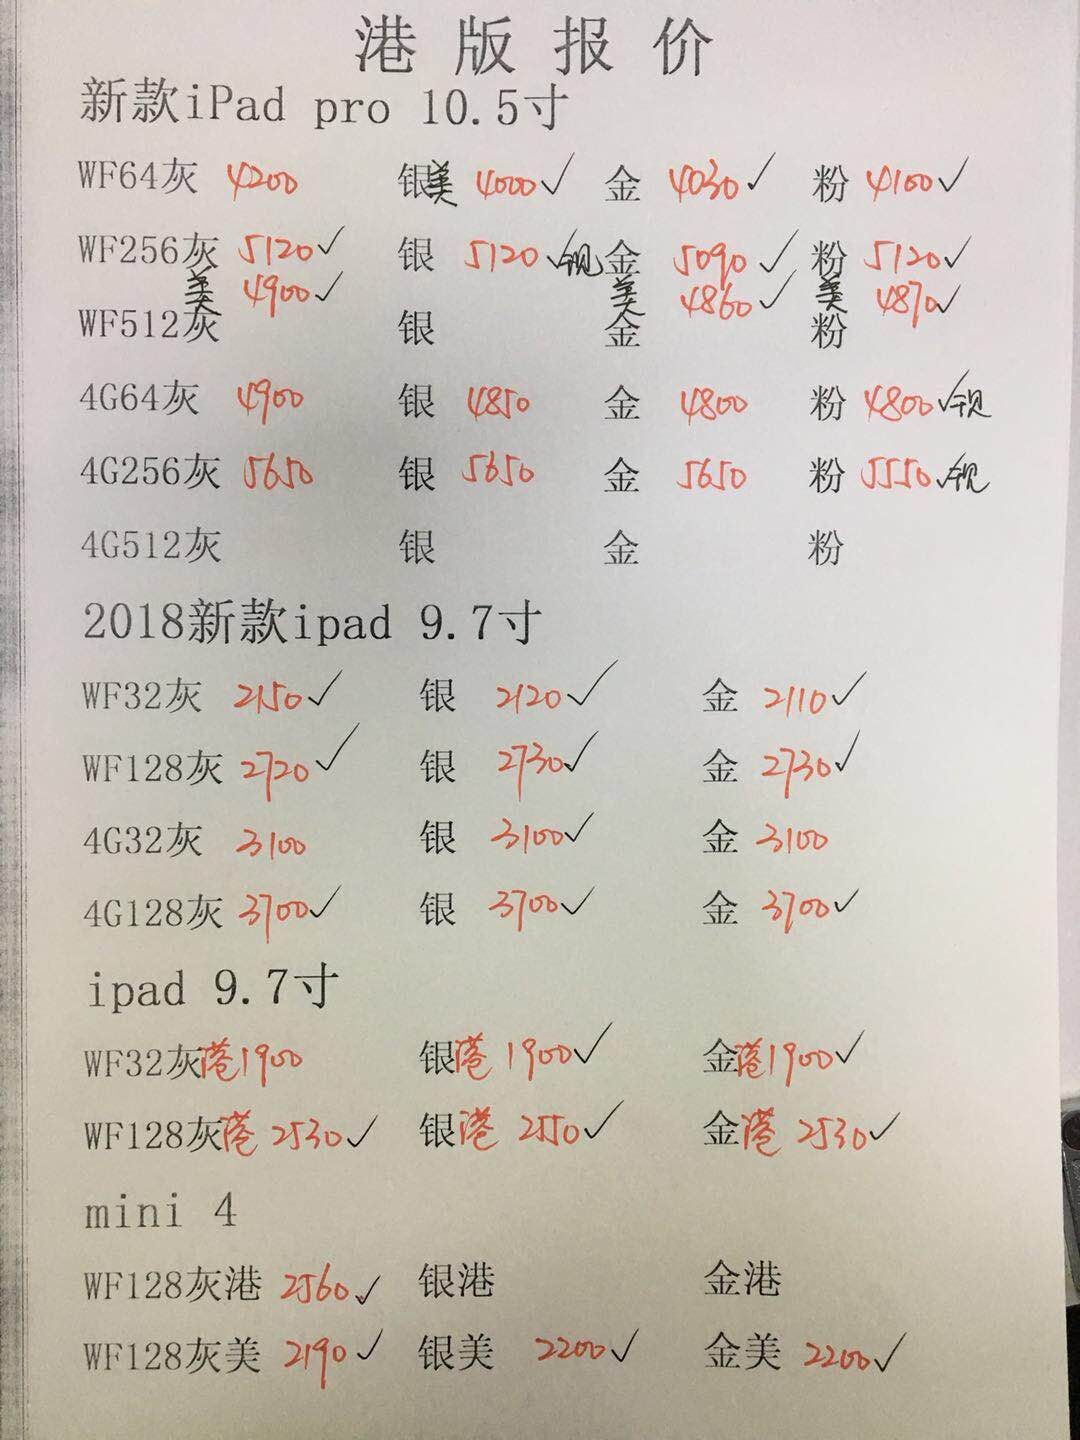 港版报价
新款iPad pro 10.5寸
WF64灰 4200 银美 4000✓ 金 4030✓ 粉 4100✓
WF256灰 5120✓ 银 5120✓现 金 5090✓ 粉 5120✓
美 4900✓ 美 4860✓ 美 4870✓
WF512灰 银 金 粉
4G64灰 4900 银 4850 金 4800 粉 4800✓现
4G256灰 5650 银 5650 金 5650 粉 5550✓现
4G512灰 银 金 粉
2018新款ipad 9.7寸
WF32灰 2150✓ 银 2120✓ 金 2110✓
WF128灰 2720✓ 银 2730✓ 金 2730✓
4G32灰 3100 银 3100✓ 金 3100
4G128灰 3700✓ 银 3700✓ 金 3700✓
ipad 9.7寸
WF32灰港1900 银港 1900✓ 金港1900✓
WF128灰港 2530✓ 银港 2550✓ 金港 2530✓
mini 4
WF128灰港 2560✓ 银港 金港
WF128灰美 2190✓ 银美 2200✓ 金美 2200✓